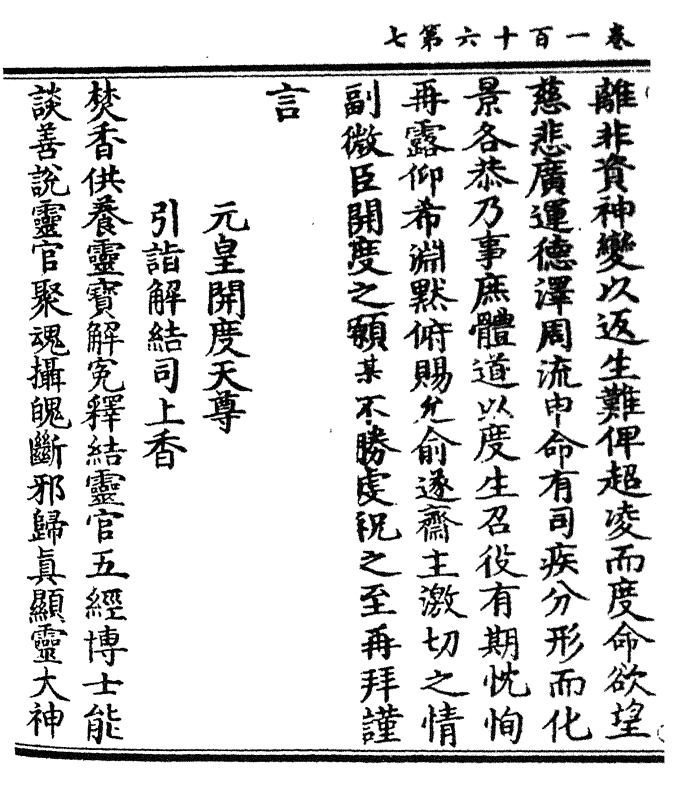 卷一百十六第七
離非資神變以返生難俾超凌而度命欲望
慈悲廣運德澤周流申命有司疾分形而化
景各恭乃事庶體道以度生召役有期忱恂
再露仰希淵默俯賜允俞遂齋主激切之情
副微臣開度之願某不勝虔祝之至再拜謹
言
元皇開度天尊
引詣解結司上香
焚香供養靈寶解冤釋結靈官五經博士能
談善說靈官聚魂攝魄斷邪歸眞顯靈大神